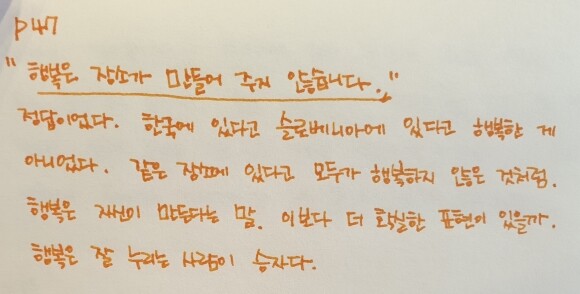 p47
"행복은 장소가 만들어 주지 않습니다."
정답이었다. 한국에 있다고 슬로베니아에 있다고 행복한 게
아니었다. 같은 장소에 있다고 모두가 행복하지 않은 것처럼.
행복은 자신이 만든다는 말. 이보다 더 확실한 표현이 있을까.
행복은 잘 누리는 사람이 승자다.